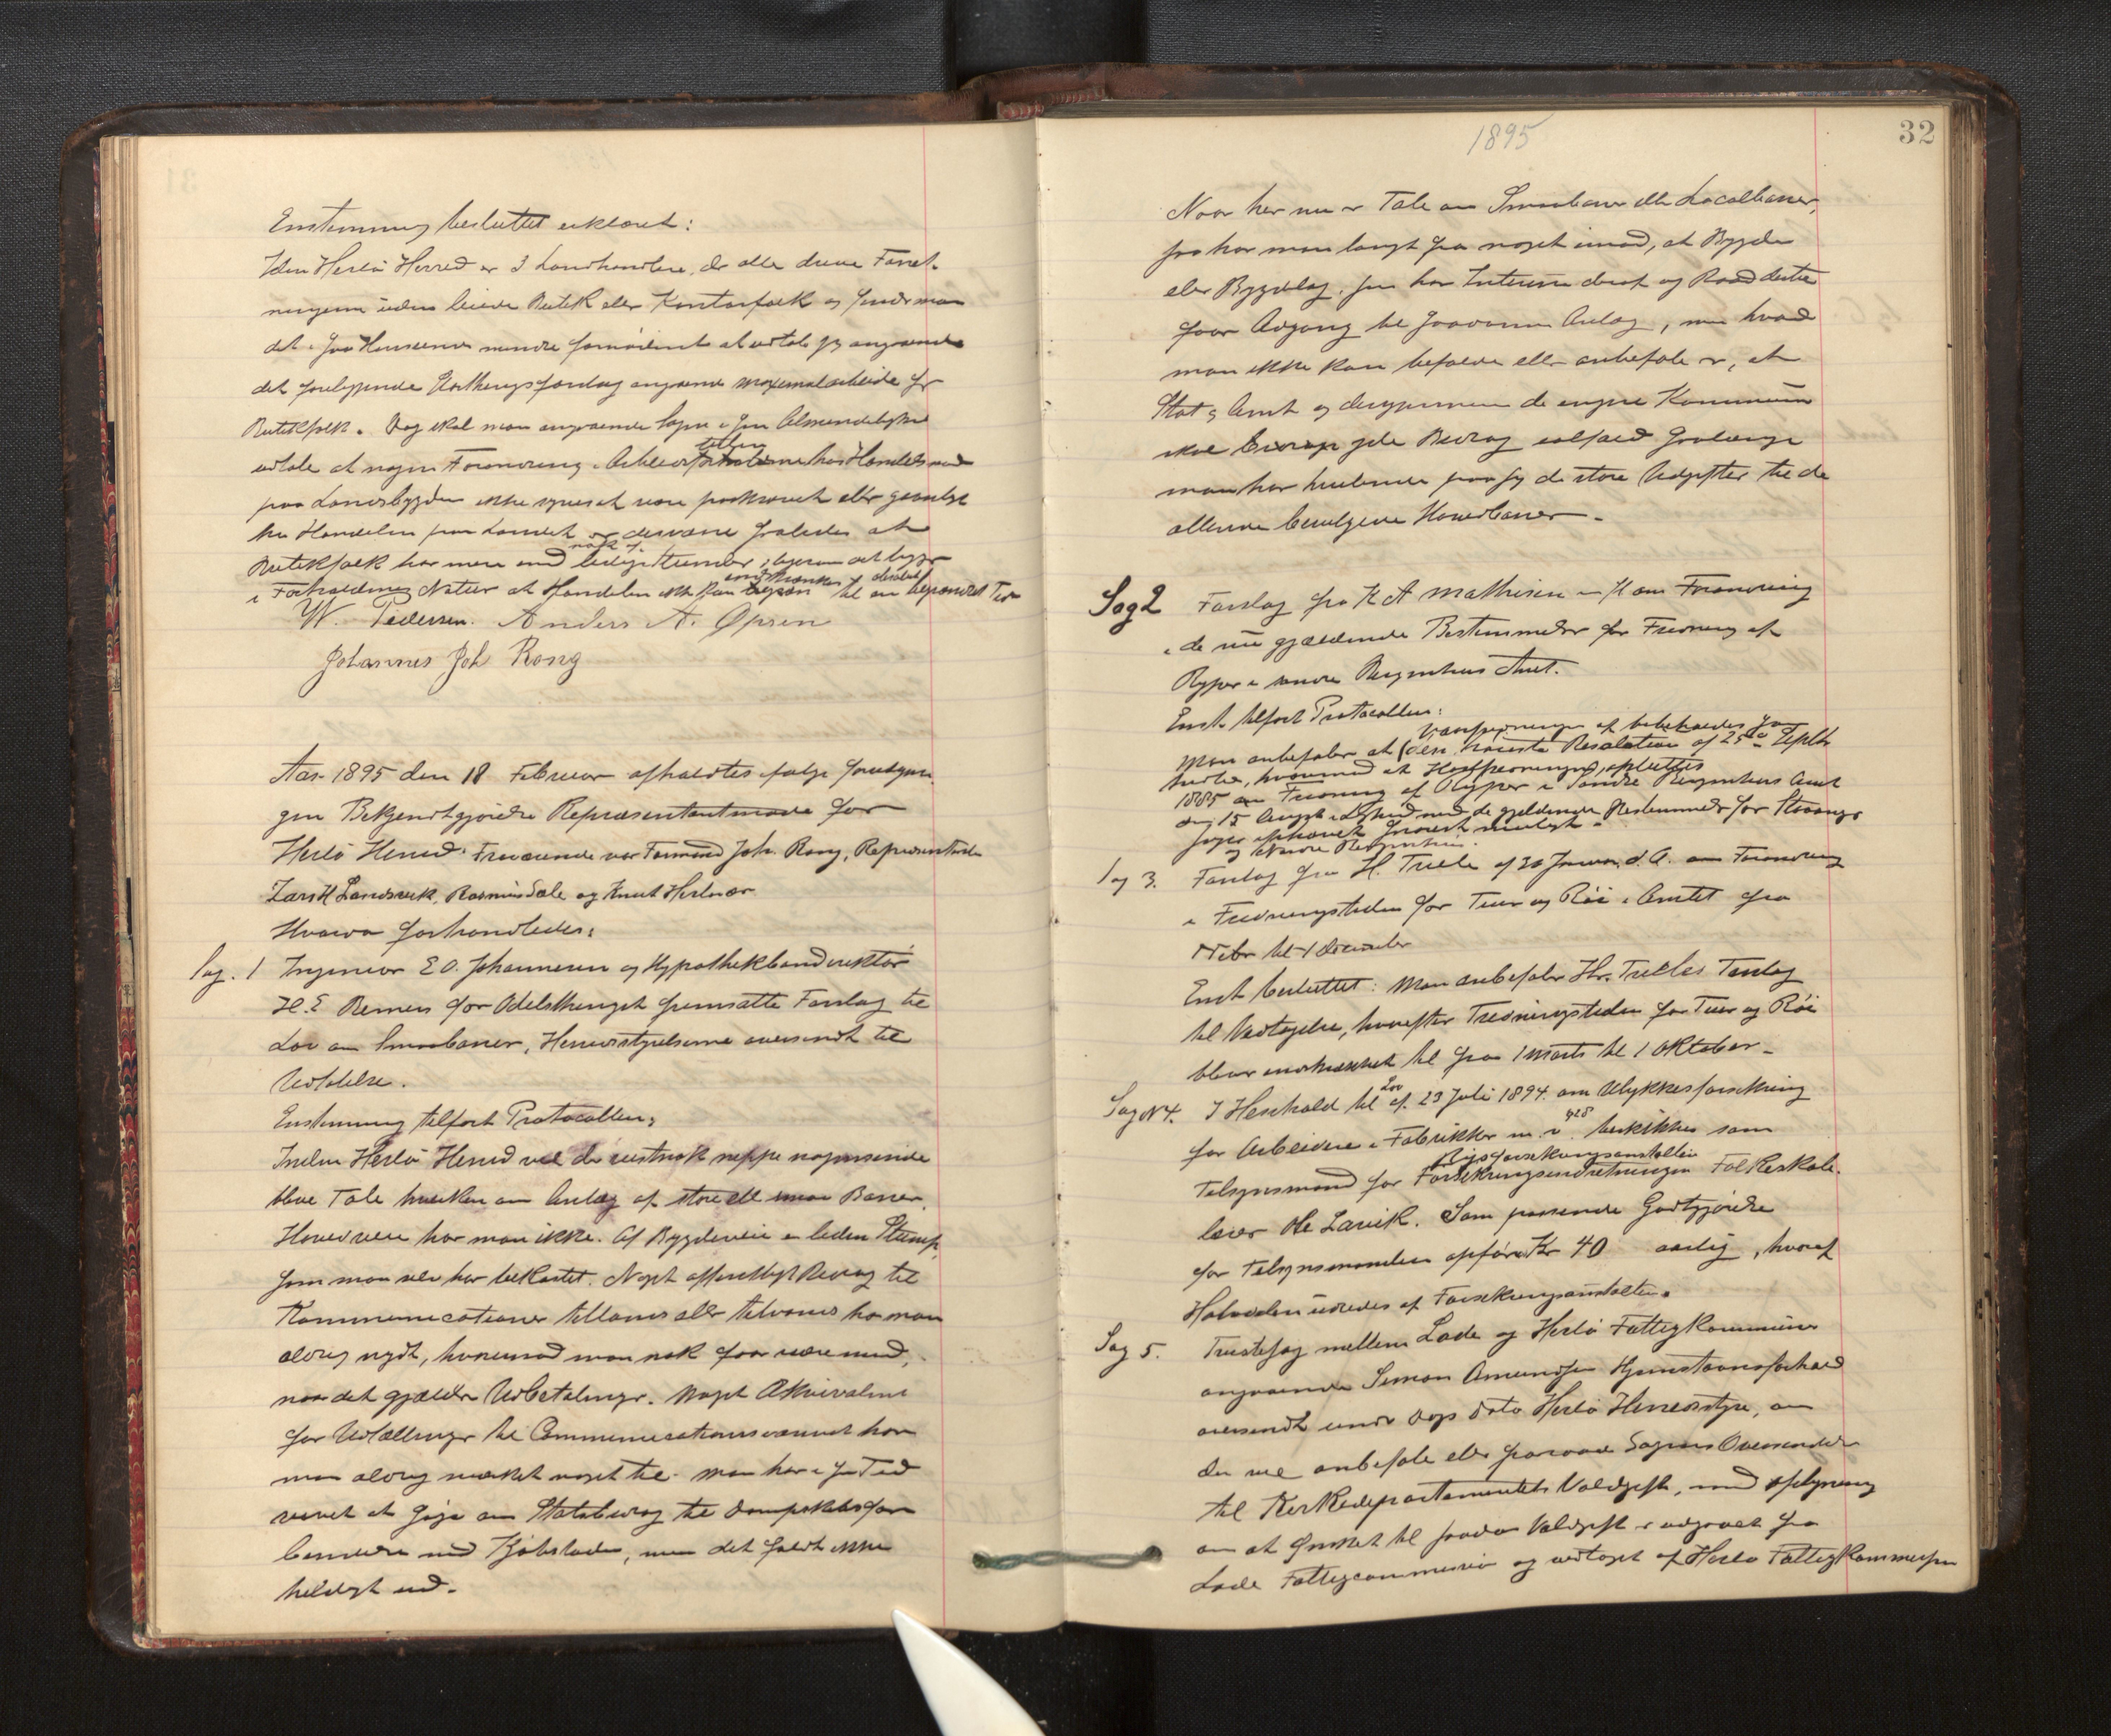 Enstemmig besluttet erklæret:
I den Herlö Herred er 3 Landhandlere, der alle drive Forret-
ningerne uden leiede Butik eller Kontorfolk og finder man
det i saa Henseende mindre fornödent at udtale sig angaaende
det foreliggende Storthingsforslag angaaende maximalarbeide for
Butikfolk. Dog skal man angaaende Sagen i sin Almindelighed
udtale at nogen Forandring i Arbeidstiden hos Handelsmænd
paa Landsbygden ikke synes at være paakrævet eller gavnligt
Handelen paa Landet er desværre saaledes at
Butikfolk har mere end nok af ledige Stunder, ligesom det ligger
i Forholdenes Natur at Handelen ikke kan indskrænkes til en begrændset Tid
W. Pedersen. Anders A. Opsen
Johannes Joh Rong
Aar 1895 den 18 Februar afholdtes ifölge forudgan-
gen Bekjendtgjörelse Repræsentantmöde for
Herlö Herred. Fremmödende var Formand Joh. Rong, Repræsentanterne
Lars H Landsvik, Rasmus Sæle og Knut Herlevær
Hvorda forhandledes:
Sag. 1 Ingeniør E O. Johannesen og Hypothekbankdirektør
H. E Berner for Odelsthinget fremsatte Forslag til
Lov om Smaabaner, Herredsstyrelserne oversendt til
Udtalelse.
Enstemmig tilfört Protocollen:
Inden Herlö Herred vil der vistnok neppe nogensinde
blive Tale hverken om Anlæg af store eller smaa Baner.
Hovedveie har man ikke. Af Bygdeveie en liden Stump,
som man selv har bekostet. Noget offentligt Bidrag til
Kommunicationer tillands eller tilvands har man
aldrig nydt, hvorimod man nok faar være med,
naar det gjælder Udbetalinger. Noget Ækvivalent
for Udtællinger til Communicationsvæsenet har
man aldrig mærket noget til. Man har i sin Tid
prøvet at söge om Statsbidrag til Dampskibsfor-
bindelse med Kjöbstaden, men det faldt ikke
heldigt ud.
1895
32
Naar her nu er Tale om Smaabaner eller Localbaner,
saa har man langt fra noget imod, at Bygder
eller Bygdelag, som har Interesse deraf og Raad dertil
faar Adgang til saadanne Anlæg, men hvad
man ikke kan befatte eller anbefale er, at
Stat, Amt og desuden de enkelte Kommuner
skal yde Bidrag ialfald saalænge
man har hvilende paa sig de store Udgifter til de
allerede bevilgede Hovedbaner.
Sag 2 Forslag fra K A Mathisen om Forandring
i de nu gjældende Bestemmelser for Fredning af
Ryper i söndre Bergenhus Amt.
Enst. tilfört Protocollen:
Man anbefaler at den Resolution af 25de Septbr
1885 om Fredning af Ryper i Söndre Bergenhus Amt
15 August i Lighed med de gjældende Bestemmelser for Stavanger
og Nordre Bergenhus.
Sag 3. Forslag fra H. Trelle af 20 Januar d. A. om Forandring
i Fredningstiden for Tiur og Röi i Amtet fra
til 1 December
Enst besluttet: Man anbefaler Hr. Trelles Forslag
til Vedtagelse, hvorefter Fredningstiden for Tiur og Röi
bliver indskrænket til fra 1 Marts til 1 Oktober.
Sag No 4. I Henhold til Lov af 23 Juli 1894 om Ulykkesforsikring
for Arbeidere i Fabrikker m. v. beskikkes som
Tilsynsmand for Rigsforsikringsanstalten Forsikringsindretningen Folkeskole-
lærer Ole Larvik. Som passende Godtgjörelse
for Tilsynsmanden opföres Kr 40 aarlig, hvoraf
Halvdelen udredes af Forsikringsanstalten.
Sag 5. Tvistesag mellem Lade og Herlö Fattigkommune
angaaende Simon Amundsen Hjemstavnsforhold
oversendt under Dags Dato Herlö Herredsstyre, om
den vil anbefale eller fraraade Sagens Oversendelse
til Kirkedepartementets Voldgift, med Oplysning
om at Önsket til saadan Voldgift er udgaaet fra
Lade Fattigcommission og vedtaget af Herlö Fattigkommission